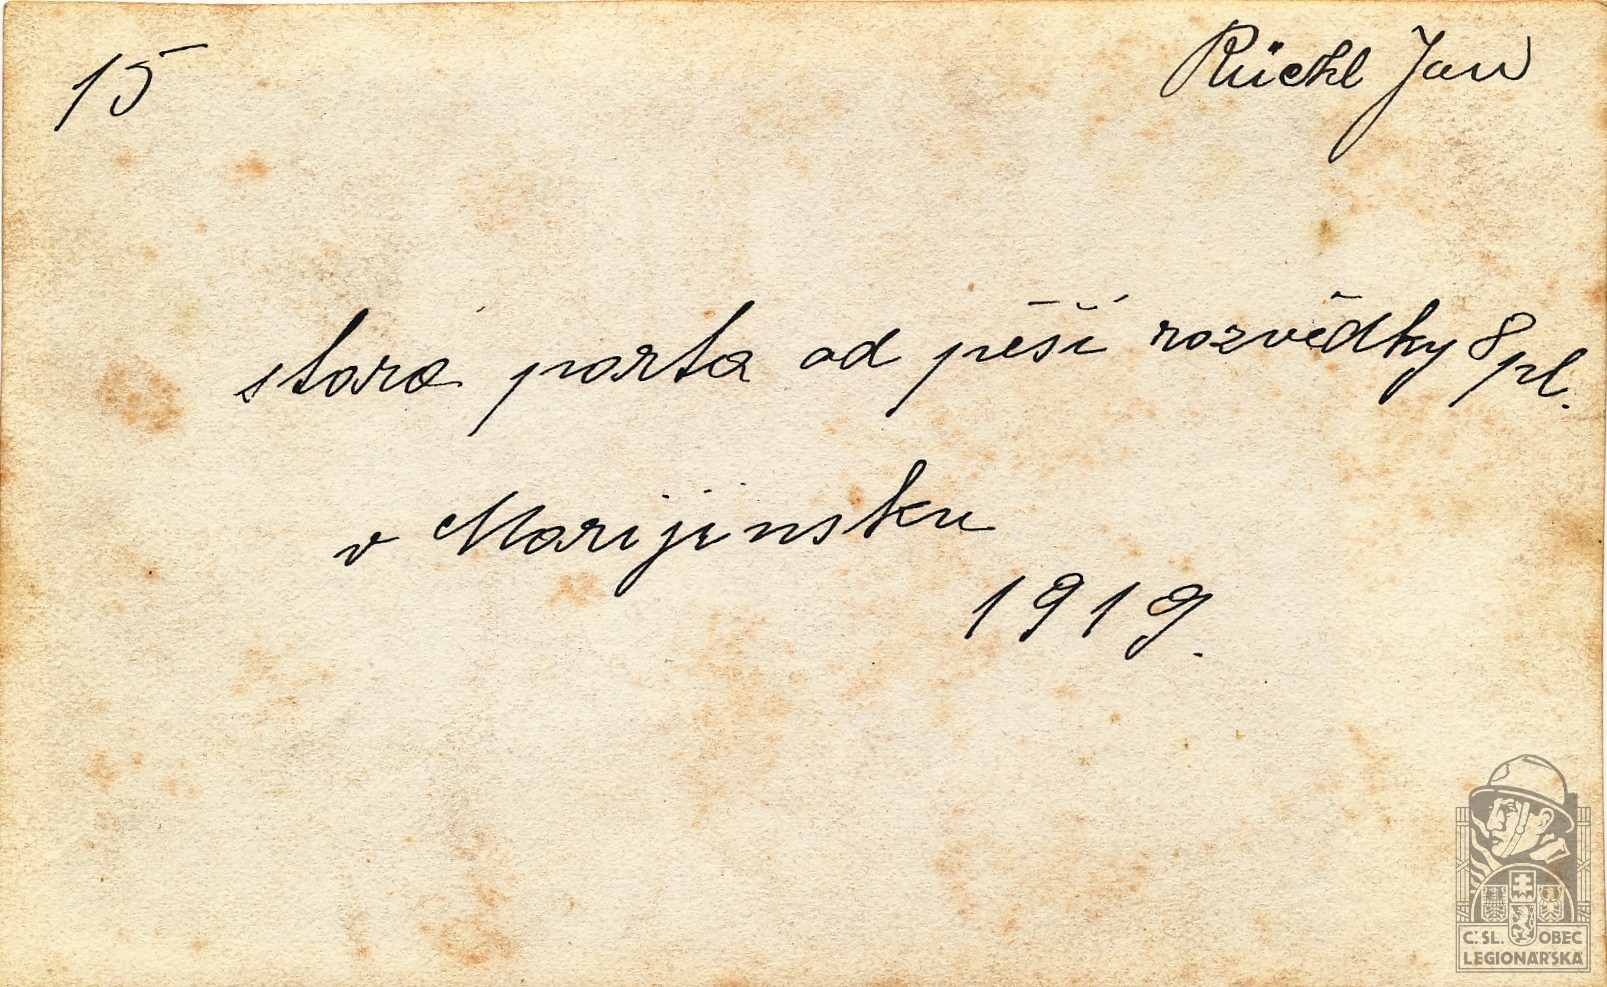 15
Rüchl Jan
stará parta od pěší rozvědky 8 pl.
v Marijinsku
1919.
Č.SL. OBEC
LEGIONÁŘSKÁ